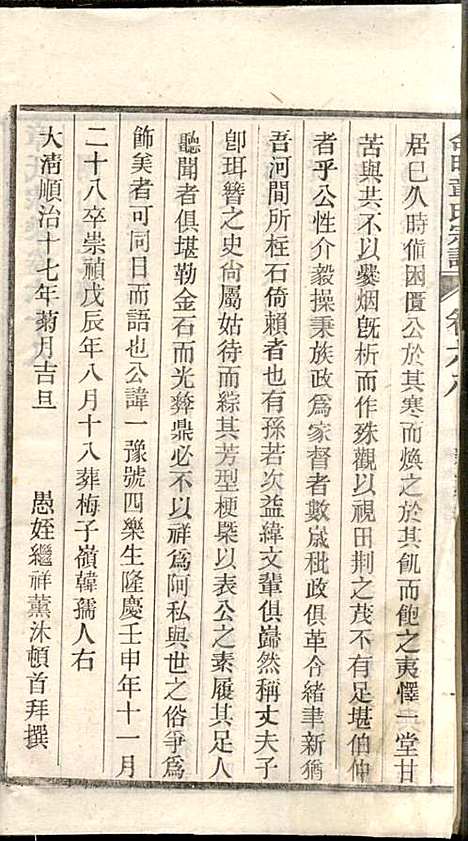 會甲章氏宗譜 卷六八
居巳久時值困匱公於其寒而煥之於其飢而飽之夷懌一堂甘
苦與共不以爨烟旣析而作殊觀以視田荆之茂不有足堪伯仲
者乎公性介毅操秉族政爲家督者數嵗秕政俱革令緒聿新猶
吾河間所柱石倚賴者也有孫若次益緯文輩俱巋然稱丈夫子
卽珥簪之史尙屬姑待而綜其芳型梗槩以表公之素履其足人
聽聞者俱堪勒金石而光彝鼎必不以祥爲阿私與世之俗爭爲
飾美者可同日而語也公諱一豫號四樂生隆慶壬申年十一月
二十八卒崇禎戊辰年八月十八葬梅子嶺韓孺人右
大淸順治十七年菊月吉旦
愚姪繼祥薰沐頓首拜撰